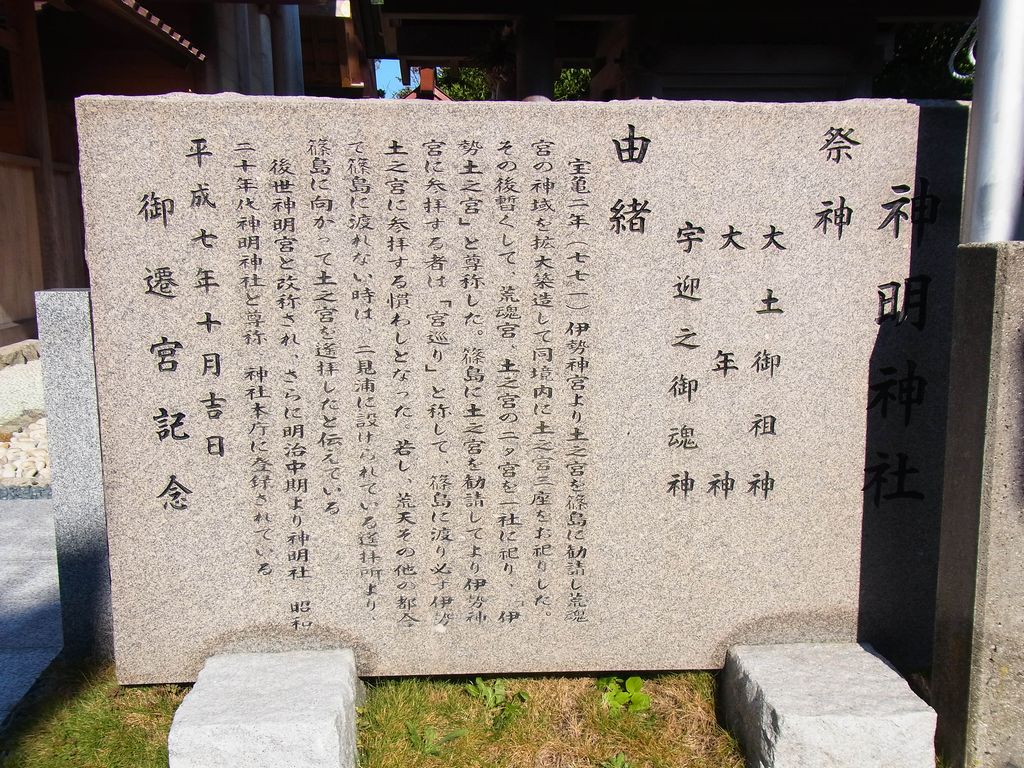 神明神社
祭神
大土御祖神
大年神
宇迎之御魂神
由緒
宝亀二年(七七一)伊勢神宮より土之宮を篠島に勧請し荒魂
宮の神域を拡大築造して同境内に土之宮三座をお祀りした。
その後暫くして、荒魂宮、土之宮の二ヶ宮を一社に祀り、「伊
勢土之宮」と尊称した。篠島に土之宮を勧請してより伊勢神
宮に参拝する者は「宮巡り」と称して、篠島に渡り必ず伊勢
土之宮に参拝する慣わしとなった。若し、荒天その他の都合
で篠島に渡れない時は、二見浦に設けられている遙拝所より、
篠島に向かって土之宮を遙拝したと伝えている
後世神明宮と改称され、さらに明治中期より神明社、昭和
二十年代神明神社と尊称、神社本庁に登録されている
平成七年十月吉日
御遷宮記念